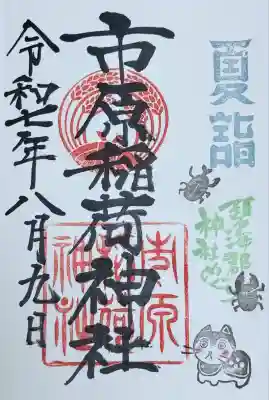 夏詣
碧海郡
神社めぐり
市原稲荷神社
令和七年八月九日
市原
稲荷
神社